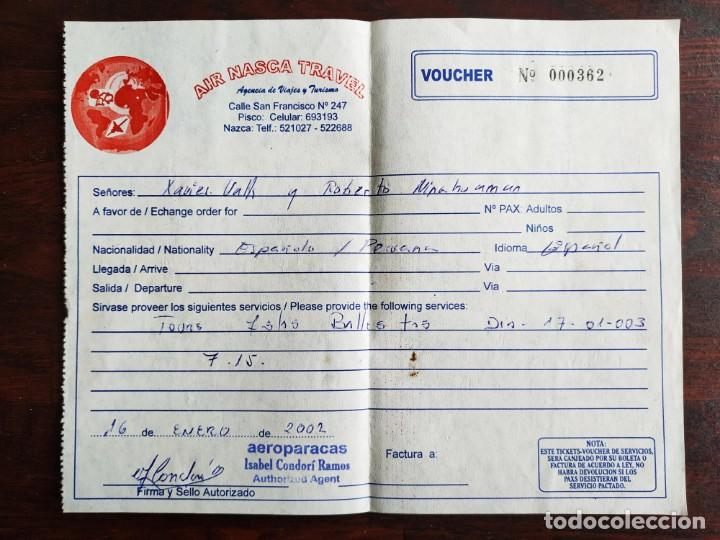 AIR NASCA TRAVEL
Agencia de Viajes y Turismo
Calle San Francisco Nº 247
Pisco: Celular: 693193
Nazca: Telf.: 521027 - 522688
VOUCHER Nº 000362
Señores: Xavier Valls y Roberto Ninahuaman
A favor de / Echange order for Nº PAX: Adultos
Niños
Nacionalidad / Nationality Española / Peruana Idioma Español
Llegada / Arrive Via
Salida / Departure Via
Sirvase proveer los siguientes servicios / Please provide the following services:
Tours Islas Ballestas Dia - 17-01-003
7.15.
16 de ENERO de 2002
aeroparacas
Isabel Condorí Ramos
Authorized Agent
Firma y Sello Autorizado
Factura a:
NOTA:
ESTE TICKETS-VOUCHER DE SERVICIOS,
SERA CANJEADO POR SU BOLETA O
FACTURA DE ACUERDO A LEY, NO
HABRA DEVOLUCION SI LOS
PAXS DESISTIERAN DEL
SERVICIO PACTADO.
todocoleccion.net